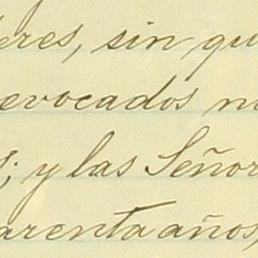 eres, sin qu
evocados n
; y las Señor
arenta años,